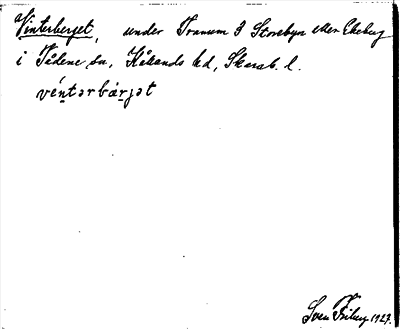 Vinterberget, under Tranum 3 Storebyn eller Ekeberg
i Tådene sn, Kållands hd, Skarab. l.
véntərbærjət
Sven Friberg 1927.